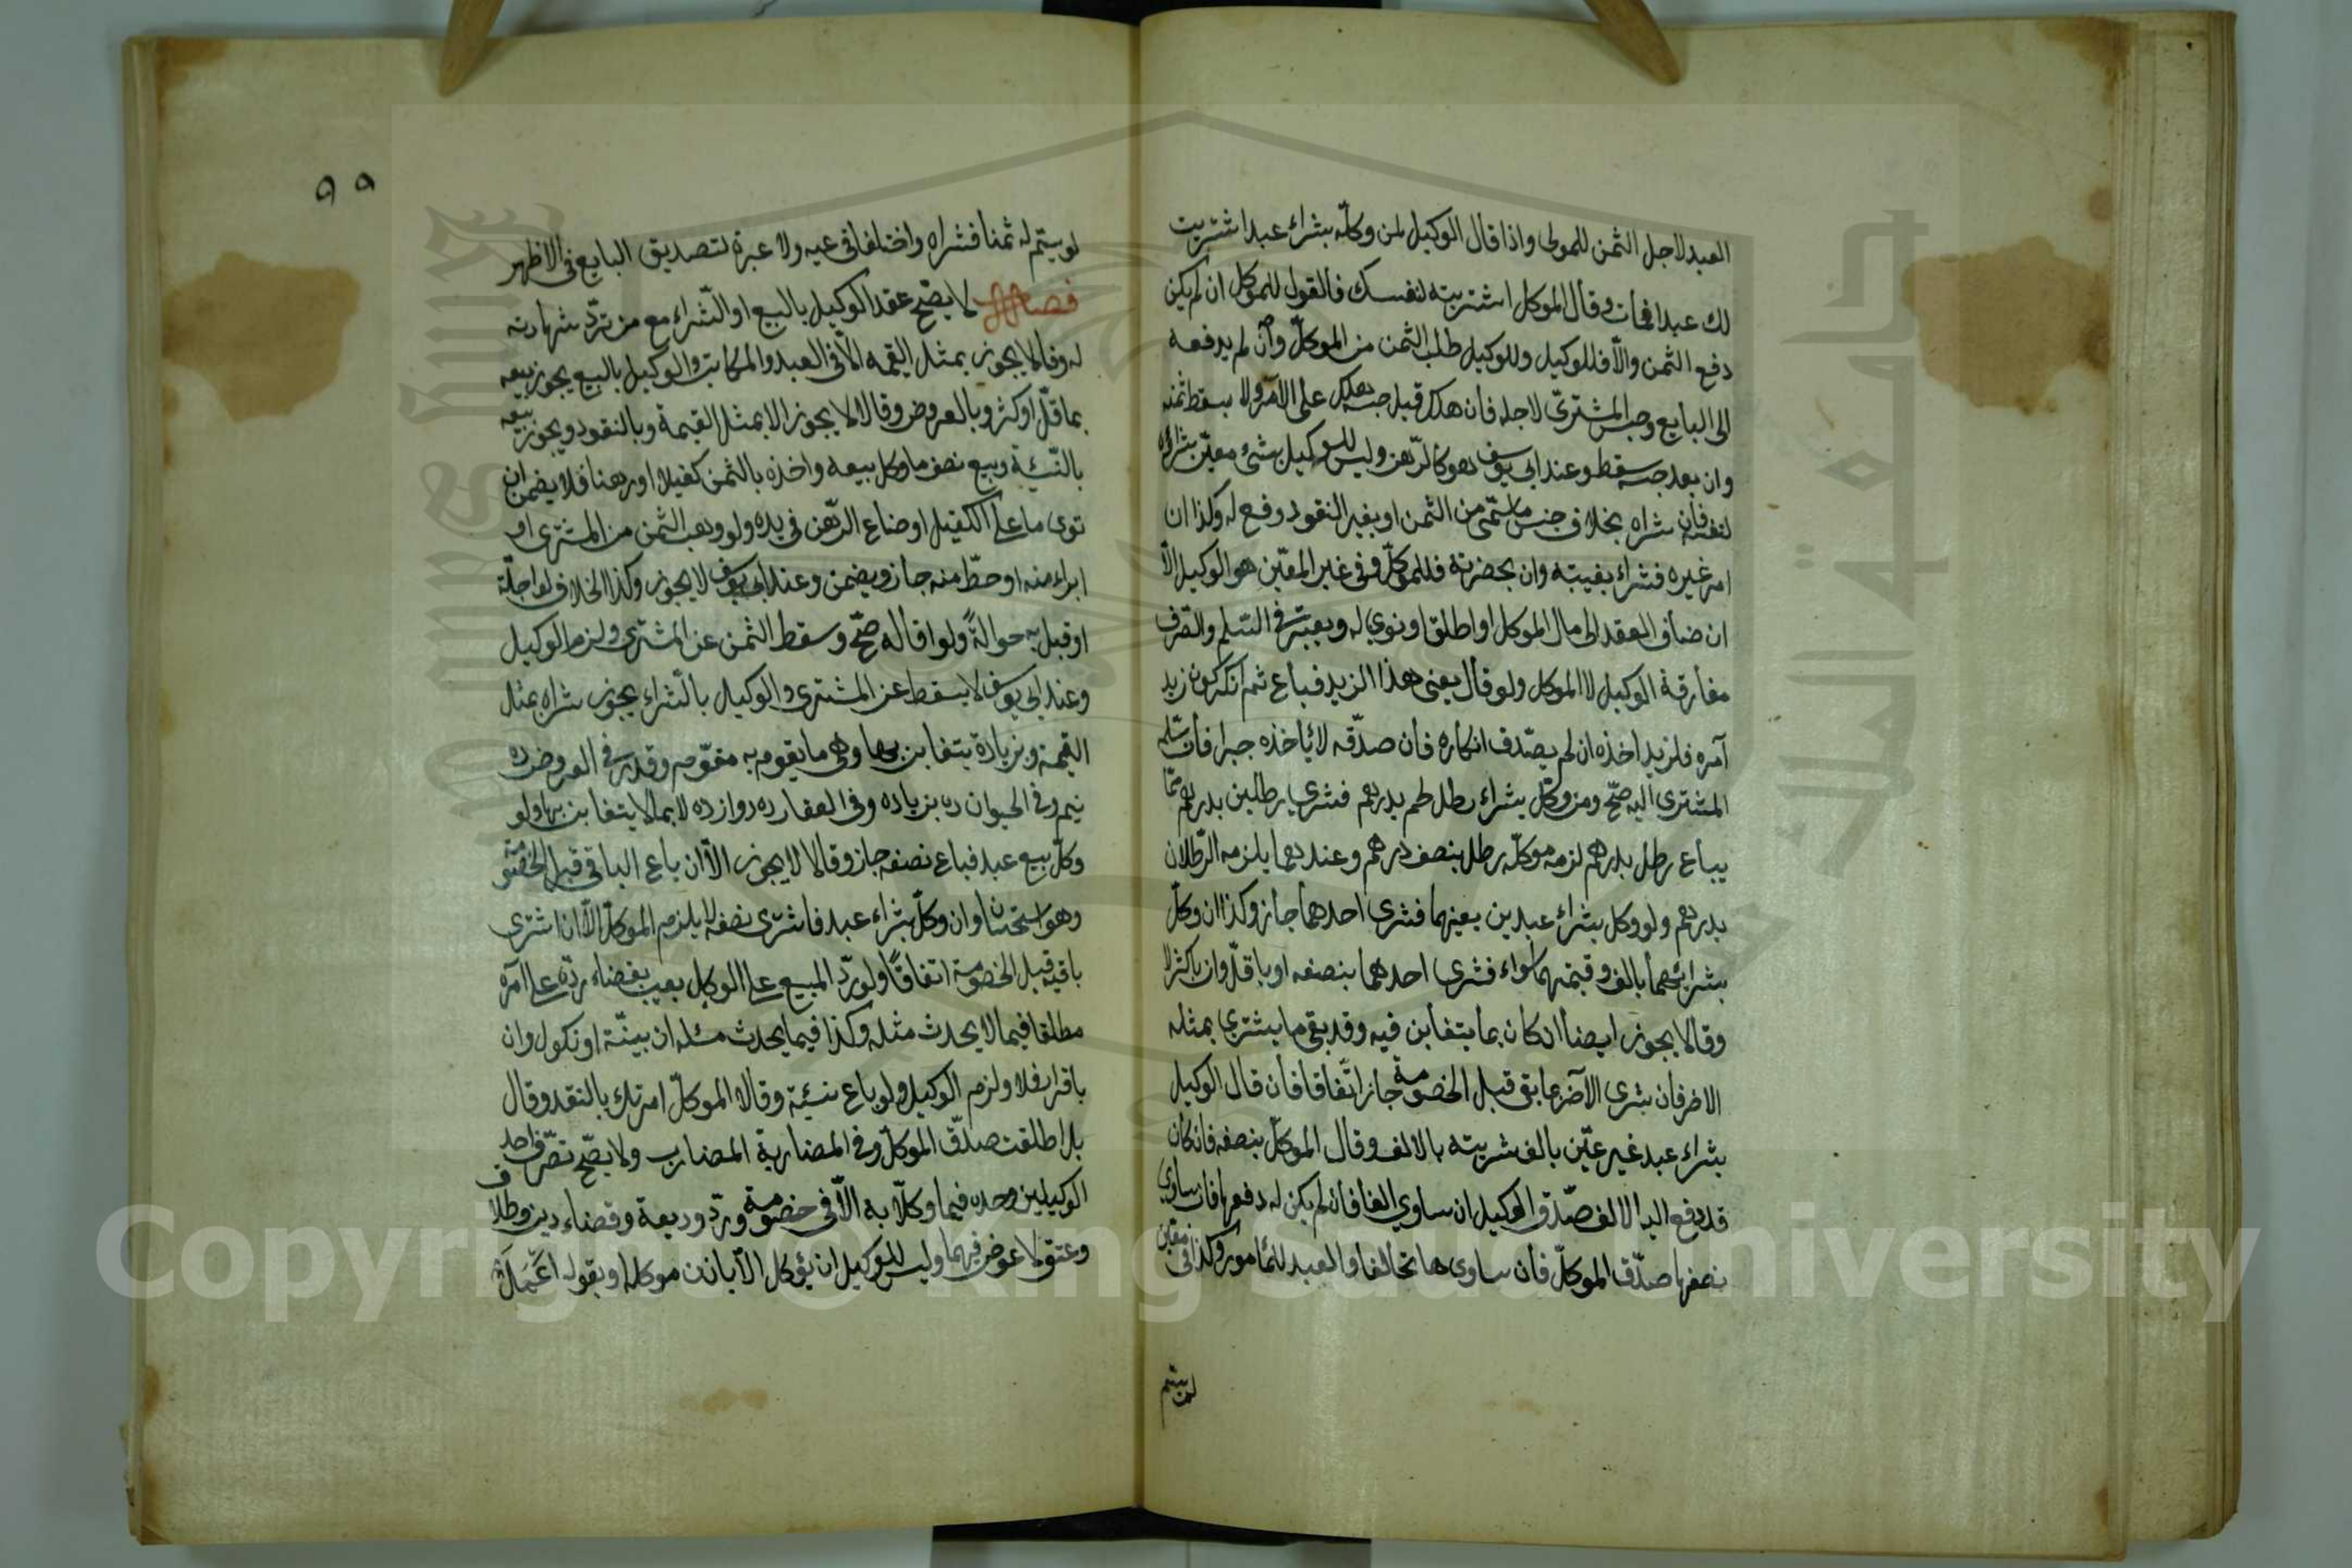 العبد لاجل الثمن للمولى واذا قال الوكيل لمن وكلّه بشراء عبد اشتريت
لك عبدا فمات وقال الموكل اشتريته لنفسك فالقول للموكل ان لم يكن
دفع الثمن والّا فللوكيل وللوكيل طلب الثمن من الموكلّ وان لم يدفعه
الى البايع وحبس المشتريّ لاجله فان هلك قبل حبسه هلك على الآمر ولا يسقط ثمنه
وان بعد حبسه سقط وعند ابي يوسف هو كالرّهن وليس للوكيل بشئ معيّن شراؤه
لنفسه فان شراه بخلاف جنس ما سمّى من الثمن او بغير النقود وقع له وكذا ان
امر غيره فشراء بغيبته وان بحضرته فللموكلّ وفى غير المعيّن هو الوكيل الّا
ان ضاف العقد الى مال الموكل او اطلق او نوى له ويعتبر فى السّلم والصّرف
مفارقة الوكيل لا الموكل ولو قال بعنى هذا الزيد فباع ثم انكر كون زيد
آمره فلزيد اخذه ان لم يصدّق انكاره فان صدّقه لا ياخذه جبرا فان سلّم
المشترى اليه صحّ ومن وكلّ بشراء رطل لحم بدرهم فشرى رطلين بدرهم ممّا
يباع رطل بدرهم لزمه موكلّه رطل بنصف درهم وعندهما يلزمه الرّطلان
بدرهم ولو وكل بشراء عبدين بعينهما فشرى احدهما جاز وكذا ان وكلّ
بشرائهما بالف وقيمتهما سواء فشرى احدهما بنصفه او باقلّ وان باكثر لا
وقالا يجوز ايضا ان كان بما يتغابن فيه وقد بقى ما يشترى بمثله
الاخر فان شرى الآخر بما بقى قبل الخصومة جاز اتّفاقا فان قال الوكيل
بشراء عبد غير عيّن بالف شريته بالالف وقال الموكلّ بنصفه فان كان
قد دفع اليه الالف صدّق الوكيل ان ساوى الفا فان لم يكن له دفعها فان ساوى
نصفها صدّق الموكلّ فان ساوى ها تحالفا والعبد للمامور وكذا فى معيّن
لمن يتم
٩٩
لو يتم له ثمنا فشراه واختلفا فى عيه ولا عبرة لتصديق البايع فى الاظهر
فصل لا يصّح عقد الوكيل بالبيع او الشّراء مع من تردّ شهادته
له وقالا يجوز بمثل القيمه الّا فى العبد والمكاتب والوكيل بالبيع يجوز بيعه
بما قلّ او كثر وبالعروض وقالا لا يجوز الا بمثل القيمة وبالنقود ويجوز بيعه
بالنّسيئة وبيع نصف ما وكل بيعه واخذه بالثمن كفيلا او رهنا فلا يضمن ان
توى ما على الكفيل او ضاع الرّهن فى يده ولو وهب الثمن من المشترى او
ابراء منه او حطّ منه جاز ويضمن وعند ابى يوسف لا يجوز وكذا الخلاف لو اجلّه
او قبل به حوالةً ولو اقاله صحّ وسقط الثمن عن المشترى ولزم الوكيل
وعند ابى يوسف لا يسقط عن المشترى والوكيل بالشّراء يجوز شراه بمثل
القيمة وبزيادة يتغابن بها وهى ما يقوم به مقوّم وقدّر فى العروض ده
نيم وفى الحيوان ده يازده وفى العقار ده دوازده لا بما لا يتغابن بها ولو
وكلّ بيع عبد فباع نصفه جاز وقالا لا يجوز الّا ان باع الباقى قبل الخصومة
وهو استحسان وان وكلّ بشراء عبد فاشترى نصفه لا يلزم الموكلّ الّا ان اشترى
باقيه قبل الخصومة اتفاقًا ولو ردّ المبيع على الوكيل بعيب بقضاء ردّه على آمره
مطلقا فيما لا يحدث مثله وكذا فيما يحدث مثله ان ببيّنة او نكول وان
باقرار فلا ولزم الوكيل ولو باع نسيئة وقال الموكلّ امرتك بالنقد وقال
بل اطلقت صدّق الموكلّ وفى المضاربة المضارب ولا يصّح تصرّف احد
الوكيلين وحده فيما وكلّا به الّا فى خصومة وردّ وديعة وقضاء دين وطلاق
وعتق لا عوض فيهما وليس للوكيل ان يؤكل الّا باذن موكله او بقوله اعْمَلْ